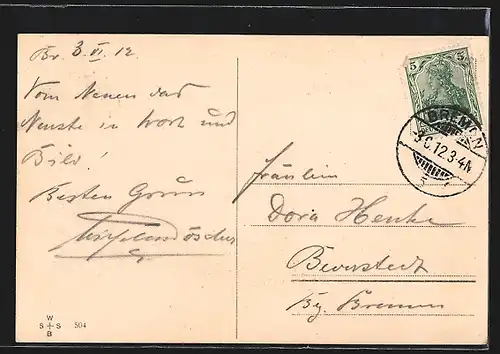 Br. 3. VI. 12.
Vom Neuen das
Neuste in Wort und
Bild!
Besten Gruss
5 5
BREMEN
12.3-4N
Fräulein
Dora Henke
Beverstedt
Bz. Bremen
W
S + S 504
B